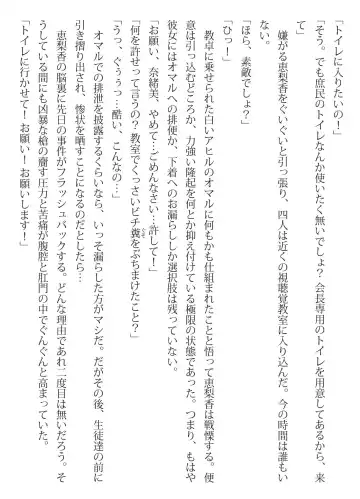 「トイレに入りたいの！」
「そう。でも庶民のトイレなんか使いたく無いでしょ？会長専用のトイレを用意してあるから、来
て」
嫌がる恵梨香をぐいぐいと引っ張り、四人は近くの視聴覚教室に入り込んだ。今の時間は誰もい
ない。
「ほら、素敵でしょ？」
「ひっ！」
教卓に乗せられた白いアヒルのオマルに何もかも仕組まれたことと悟って恵梨香は戦慄する。便
意は引っ込むどころか、力強い隆起を何とか抑え付けている極限の状態であった。つまり、もはや
彼女にはオマルへの排便か、下着へのお漏らししか選択肢は残っていない。
「お願い、奈緒美、やめて…ごめんなさい…許して！」
「何を許せって言うの？教室でくっさいビチ糞をぶちまけたこと？」
「うっ、ぐぅうっ…酷い、こんなの…」
オマルでの排泄を披露するくらいなら、いっそ漏らした方がマシだ。だがその後、生徒達の前に
引き摺り出され、惨状を晒すことになるのだとしたら…
恵梨香の脳裏に先日の事件がフラッシュバックする。どんな理由であれ二度目は無いだろう。そ
うしている間にも凶暴な槍の齎す圧力と苦痛が腹腔と肛門の中でぐんぐんと高まっていた。
「トイレに行かせて！お願い！お願いします！」